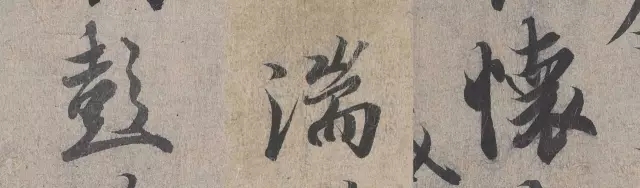 彭湍懷